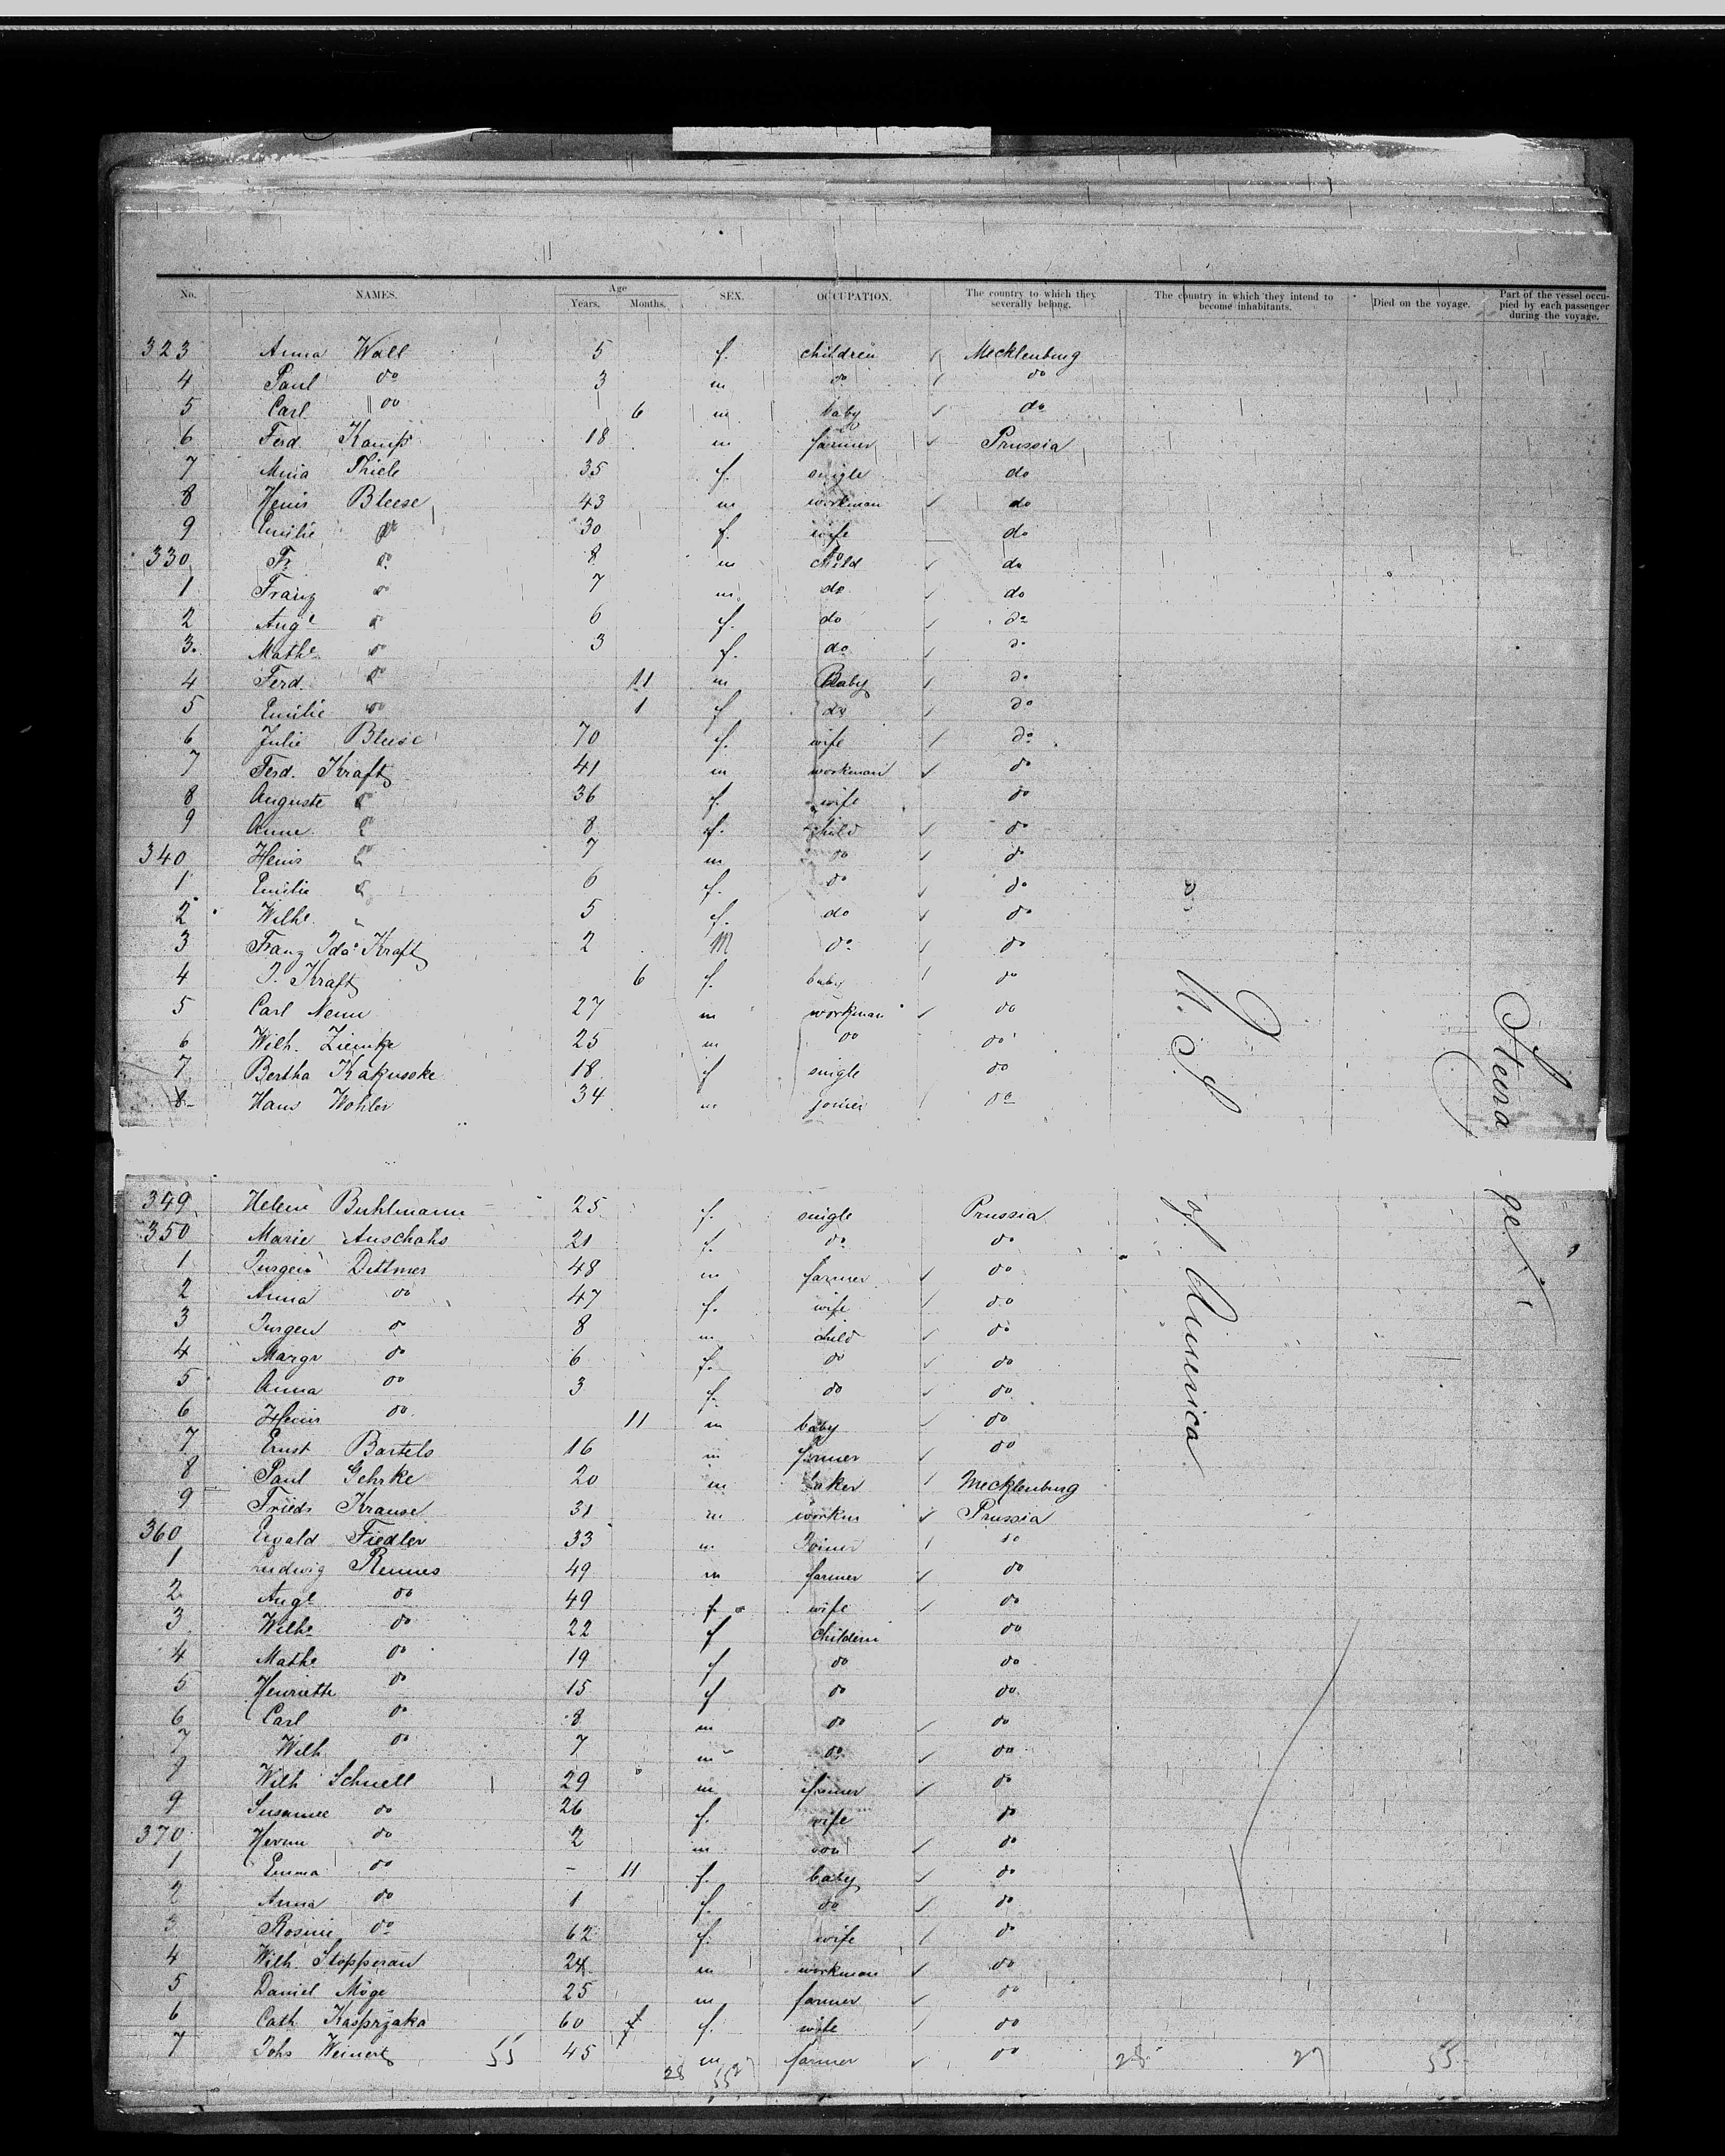 No. NAMES. Age Years. Months. SEX. OCCUPATION. The country to which they severally belong. The country in which they intend to become inhabitants. Died on the voyage. Part of the vessel occupied by each passenger during the voyage.
323 Anna Wall 5 f. children Mecklenburg
4 Paul do 3 m do do
5 Carl do 6 m baby do
6 Ferd Kamp 18 m farmer Prussia
7 Mina Thiele 35 f. single do
8 Heinr Bleese 43 m workman do
9 Emilie do 30 f. wife do
330 Fr. do 8 m child do
1 Franz do 7 m. do do
2 Auge do 6 f. do do
3. Mathe do 3 f. do do
4 Ferd. do 11 m Baby do
5 Emilie do 1 f do do
6 Julie Bleese 70 f. wife do
7 Ferd. Kraft 41 m workman do
8 Auguste do 36 f. wife do
9 Anne do 8 f. child do
340 Heinr do 7 m do do
1 Emilie do 6 f. do do
2 Wilhe 5 f. do do
3 Franz Ida Kraft 2 M do do
4 I. Kraft 6 f. baby do
5 Carl Nenn 27 m workman do
6 Wilh. Ziemke 25 m do do
7 Bertha Kakuscke 18 f single do
8 Hans Wohler 34 m joiner do
349 Helene Buhlmann 25 f. single Prussia
350 Marie Auschahs 21 f. do do
1 Jurgen Dittmer 48 m farmer do
2 Anna do 47 f. wife do
3 Jurgen do 8 m child do
4 Margr do 6 f. do do
5 Anna do 3 f. do do
6 Heinr do 11 m baby do
7 Ernst Bartels 16 m farmer do
8 Paul Gehrke 20 m baker Mecklenburg
9 Friedr Krause 31 m workm Prussia
360 Ewald Fiedler 33 m Joiner do
1 Ludwig Rennes 49 m farmer do
2 Auge do 49 f. wife do
3 Wilhe do 22 f children do
4 Mathe do 19 f do do
5 Henriette do 15 f do do
6 Carl do 8 m do do
7 Wilh do 7 m do do
8 Wilh Schnell 29 m farmer do
9 Susanne do 26 f. wife do
370 Herm do 2 m son do
1 Emma do - 11 f. baby do
2 Anna do 1 f. do do
3 Rosine do 62 f. wife do
4 Wilh. Stopperan 24 m workman do
5 Daniel Möge 25 m farmer do
6 Cath Kasprzaka 60 f. wife do
7 Johs Weinert 55 45 m farmer do
28 27 55 28 27 55
U. S. of America
Steerage